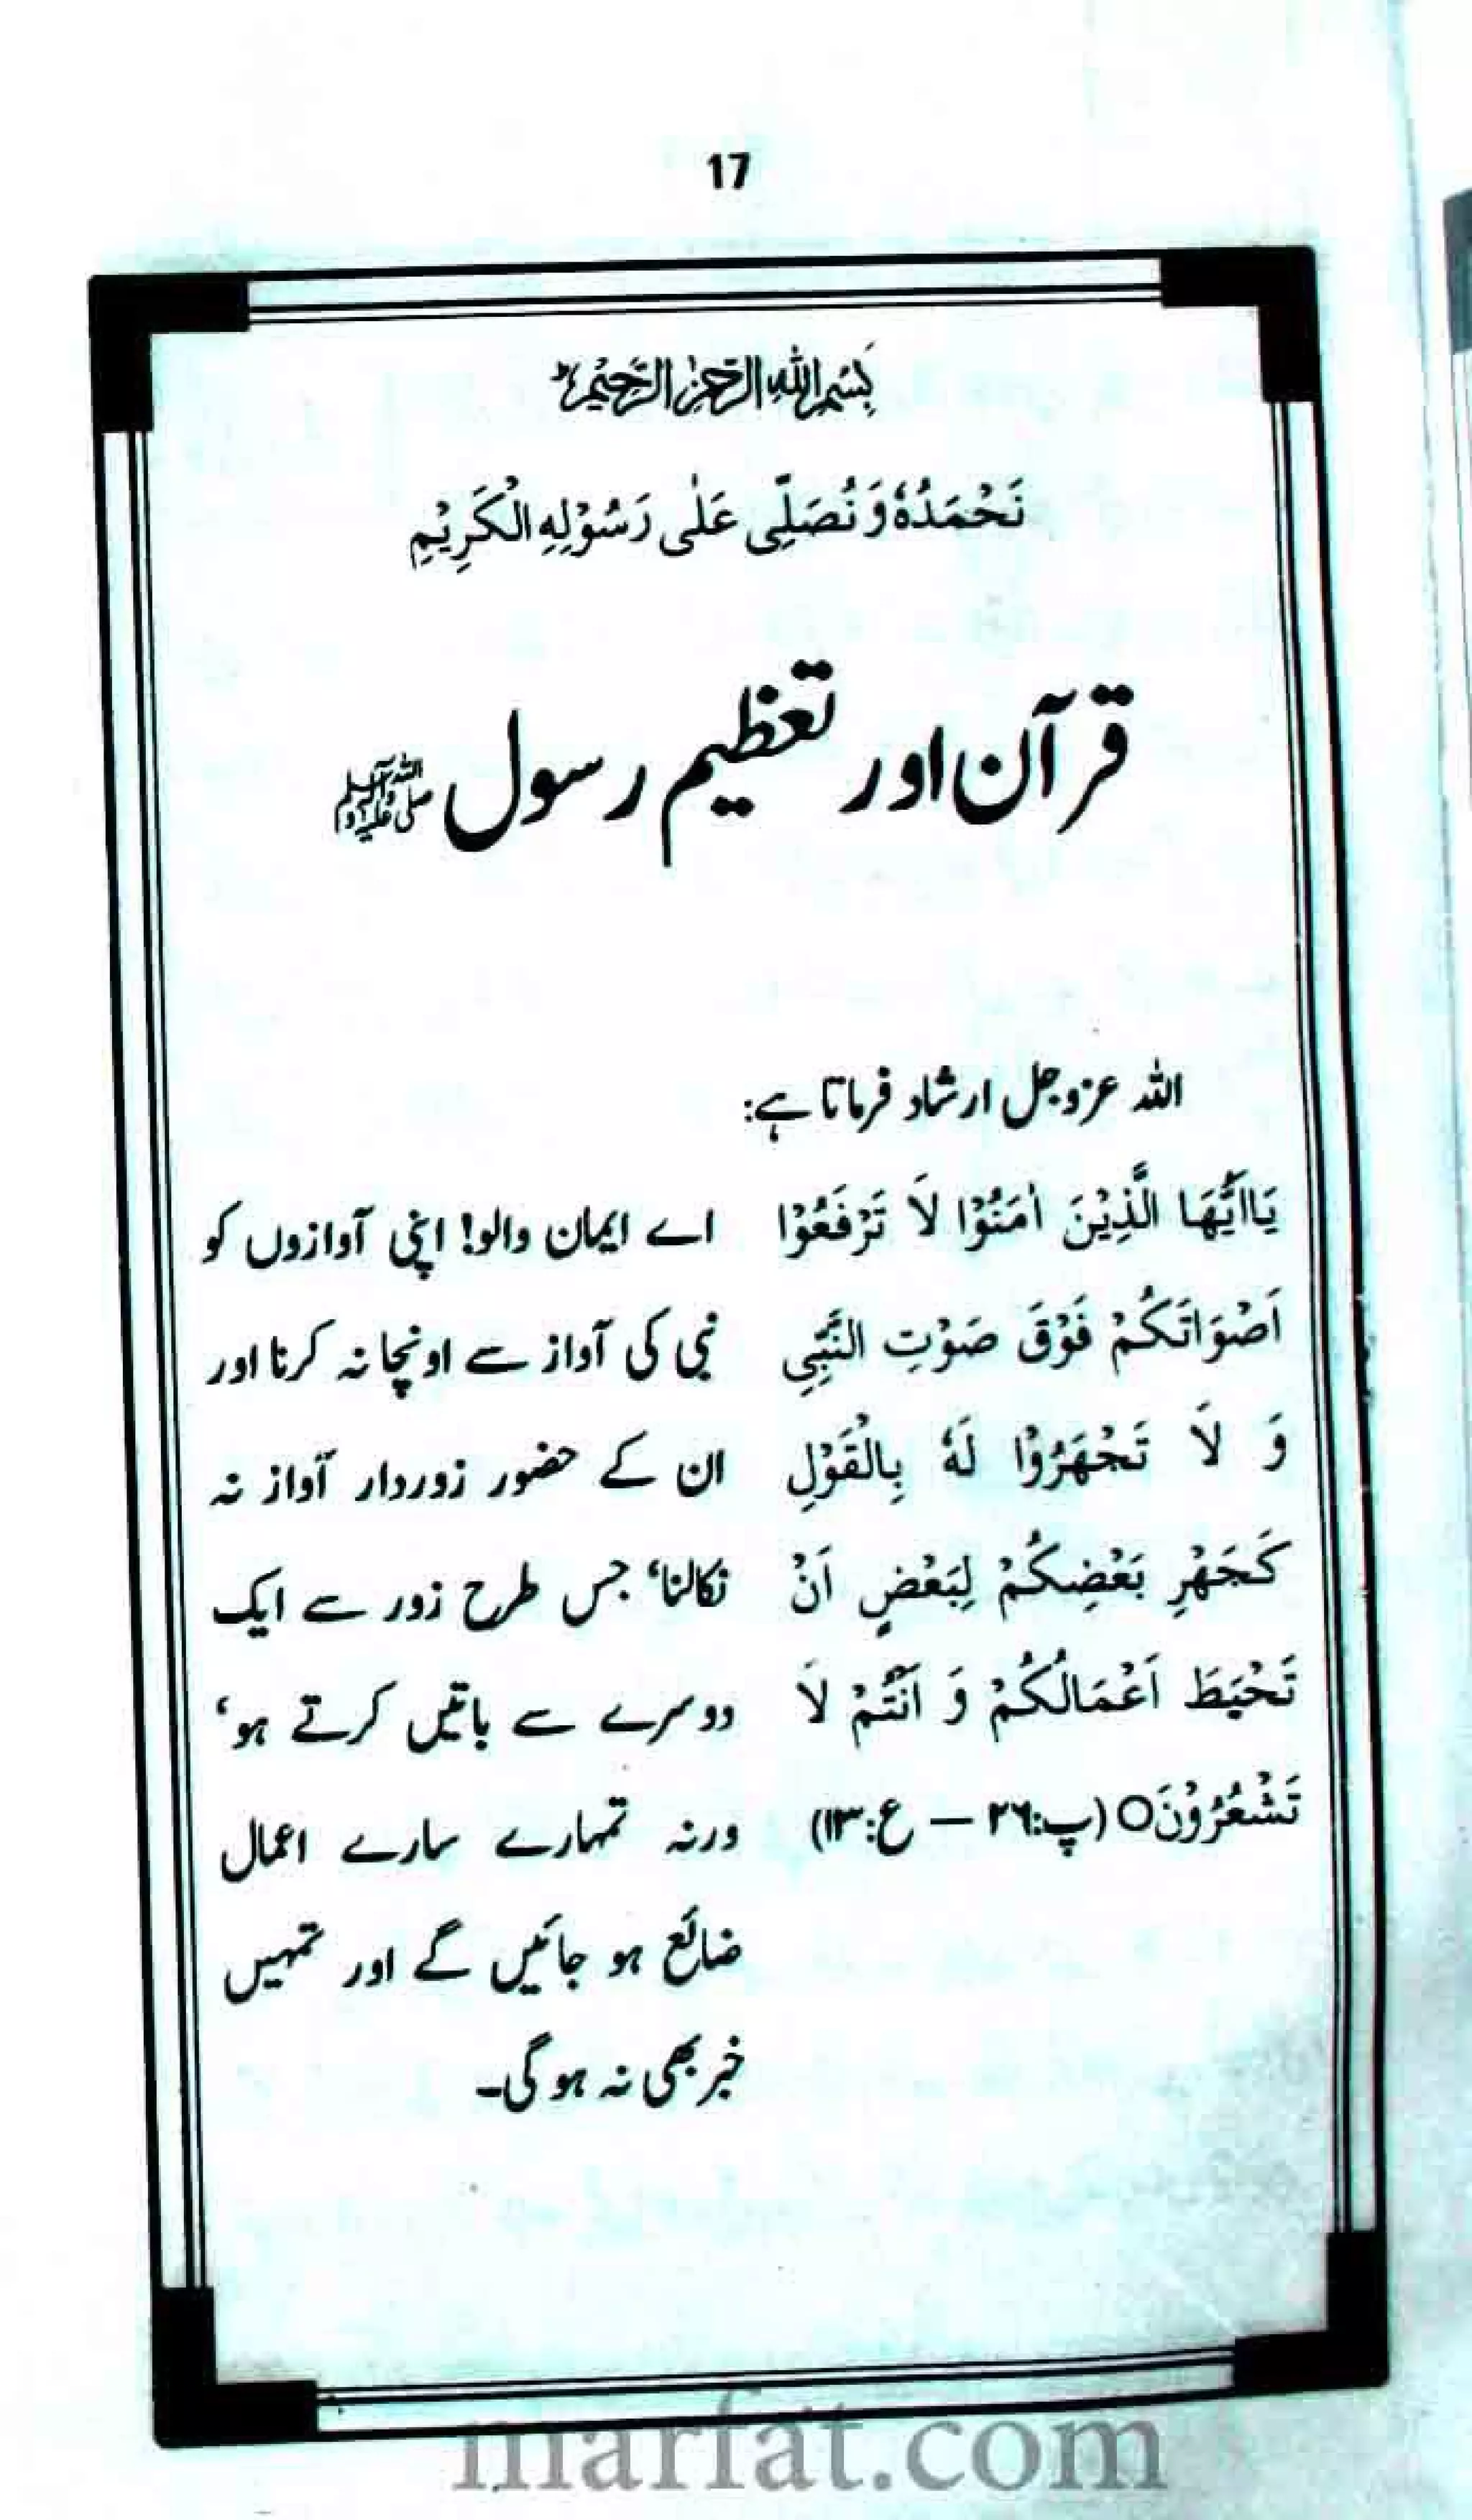 17
بِسْمِ اللهِ الرَّحْمٰنِ الرَّحِيْمِ ط
نَحْمَدُهٗ وَ نُصَلِّی عَلٰی رَسُوْلِهِ الْکَرِیْمِ
قرآن اور تعظیم رسول ﷺ
اللہ عزوجل ارشاد فرماتا ہے:
يَااَيُّهَا الَّذِيْنَ اٰمَنُوْا لَا تَرْفَعُوْا
اَصْوَاتَكُمْ فَوْقَ صَوْتِ النَّبِّىِ
وَ لَا تَجْهَرُوْا لَهٗ بِالْقَوْلِ
كَجَهْرِ بَعْضِكُمْ لِبَعْضٍ اَنْ
تَحْبَطَ اَعْمَالُكُمْ وَ اَنْتُمْ لَا
تَشْعُرُوْنَ○ (پ:۲۶ – ع:۱۳)
اے ایمان والو! اپنی آوازوں کو
نبی کی آواز سے اونچا نہ کرنا اور
ان کے حضور زوردار آواز نہ
نکالنا، جس طرح زور سے ایک
دوسرے سے باتیں کرتے ہو،
ورنہ تمہارے سارے اعمال
ضائع ہو جائیں گے اور تمہیں
خبر بھی نہ ہوگی۔
marfat.com